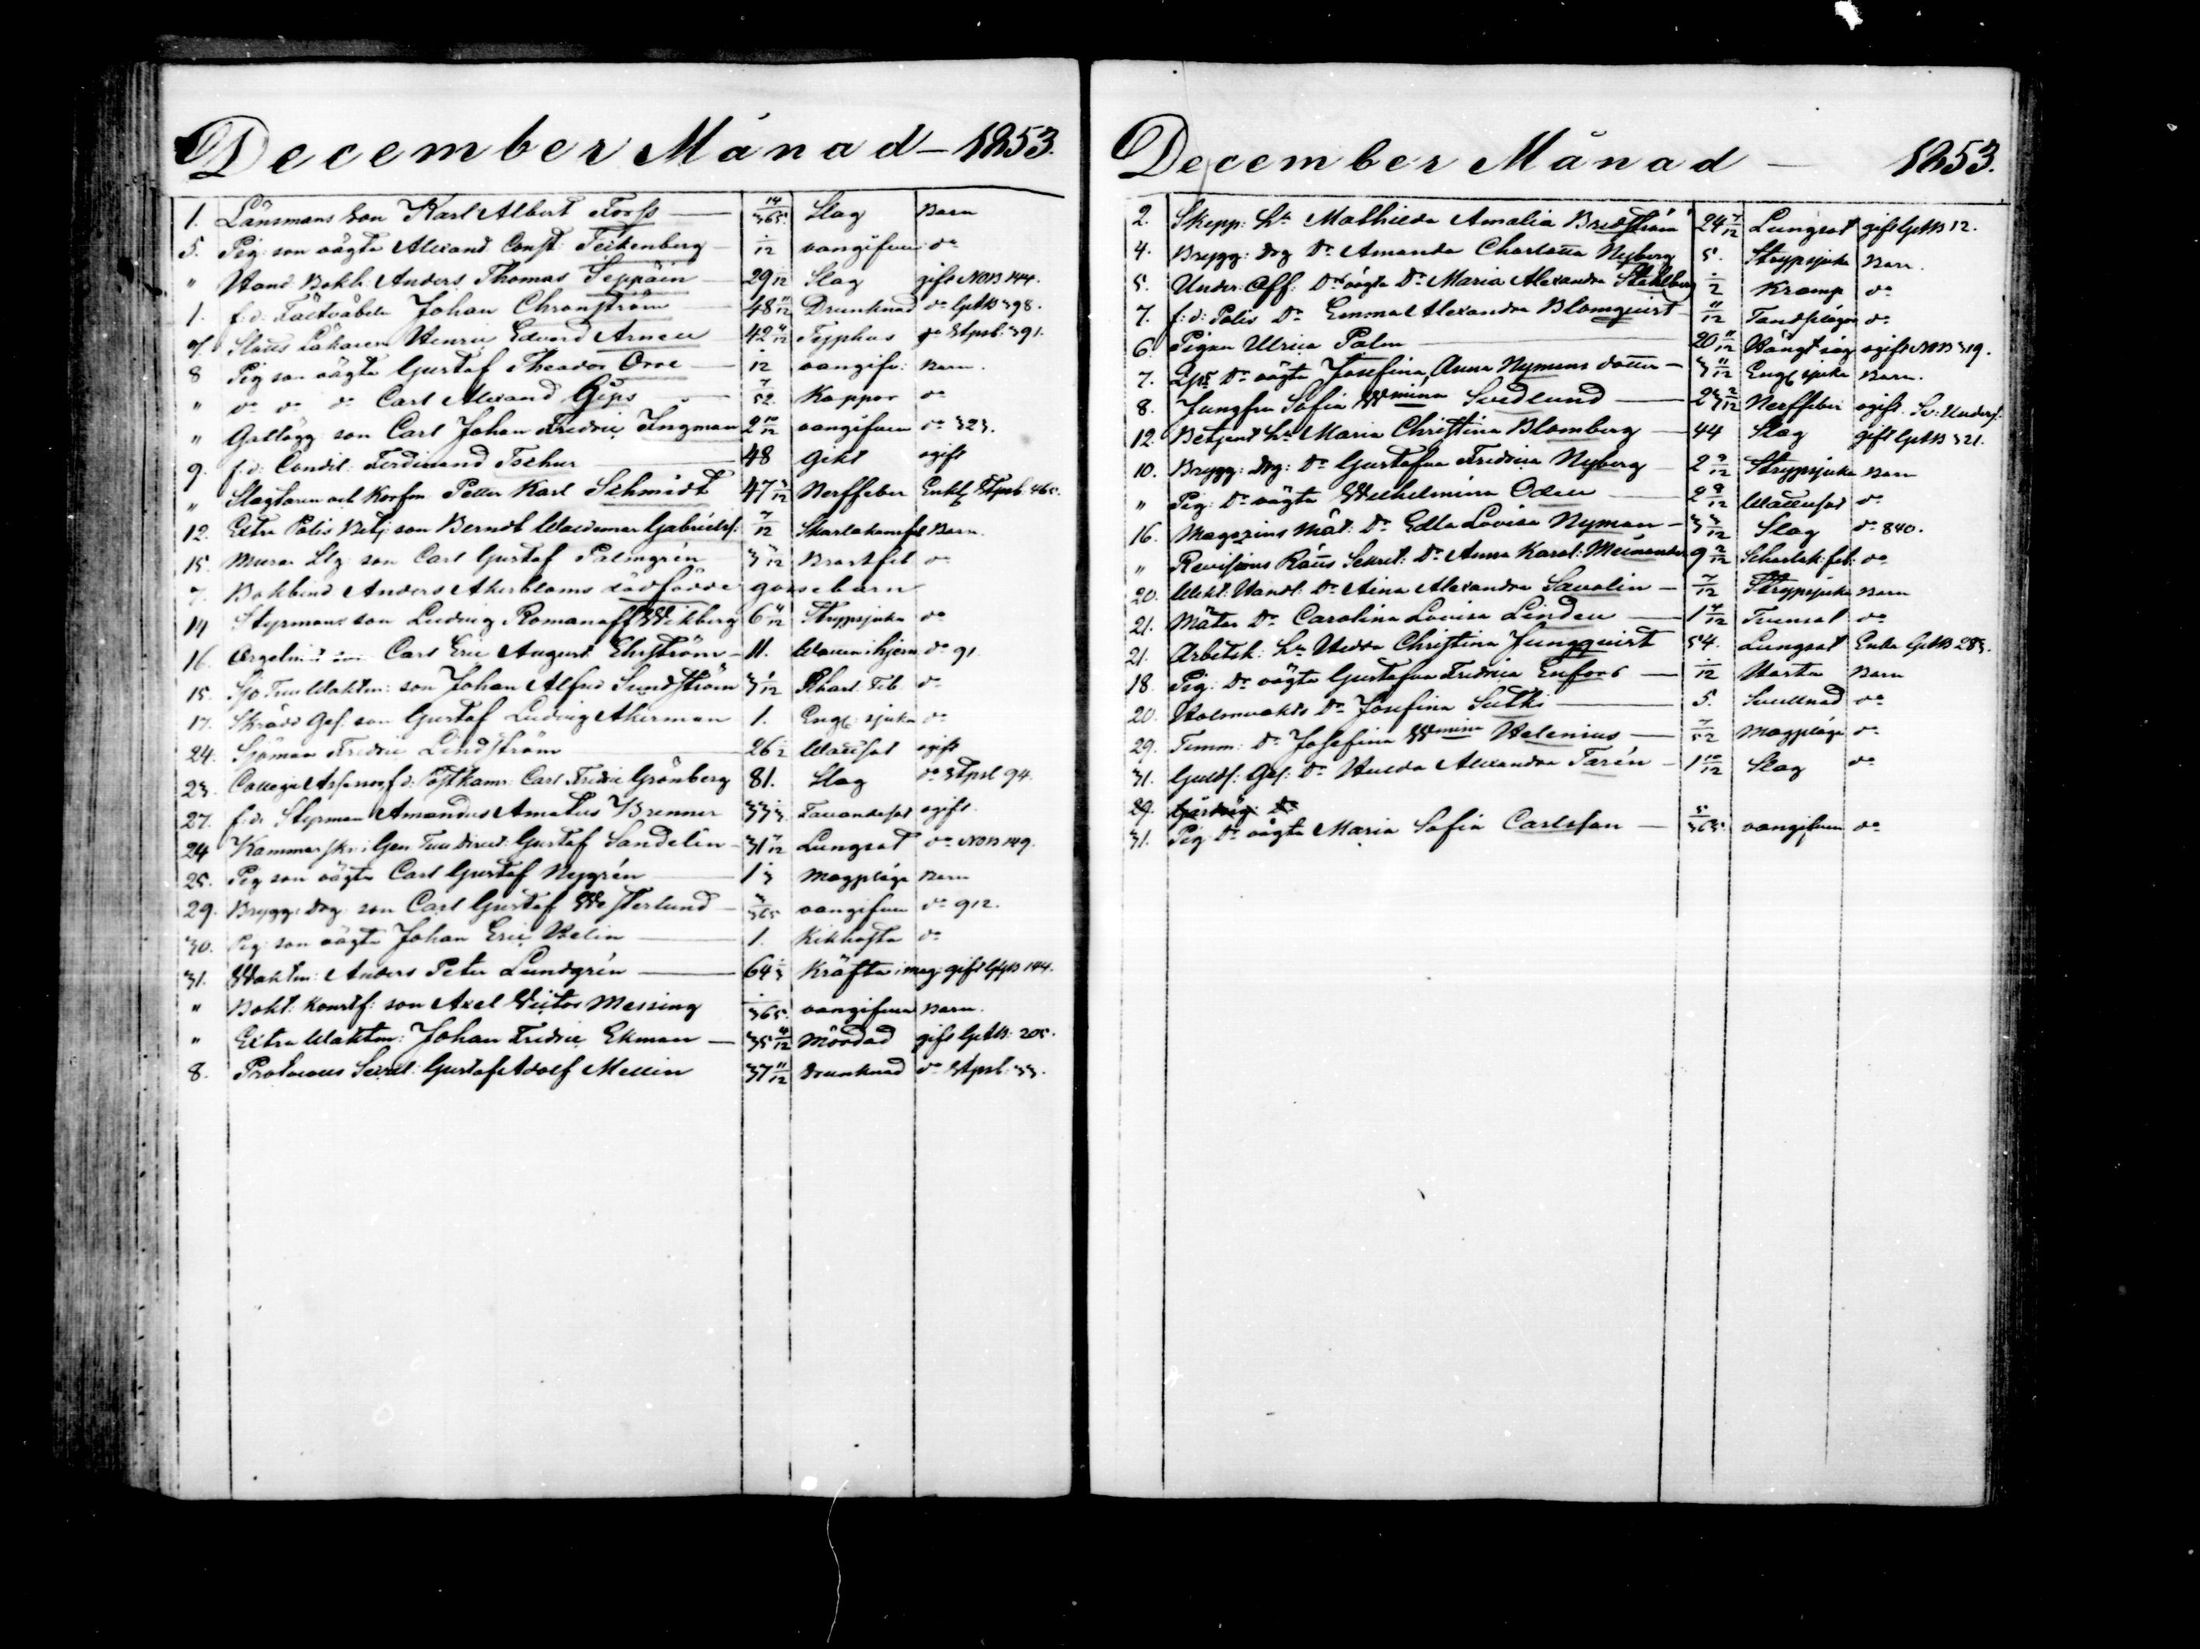 December Månad – 1853.
1. Länsmans son Karl Albert Forss — 14/365 Slag Barn
5. Pig: son oägta Alexand Const: Teckenberg 1/12 oangifven do
" Hand: Bokh: Anders Thomas Seppäin 29 /12 Slag gift NOB 144.
1. f:d: Fältväbeln Johan Chronström 48 11/12 Drunknad do GptB 398.
Stads Läkaren Henric Edvard Armen 42 /12 Typhus do StpsB: 391.
8 Pig son oägta Gustaf Theodor Orre 12 oangifv: Barn.
" do do do Carl Alexand Gips 7/52 Koppor do
" son Carl Johan Fredric Ingman 2 10/12 oangifven do 323.
9. f:d: Condit: Ferdinand Tschur — 48 Gikt ogift
" Slagtaren och Korfm Petter Karl Schmidt 47 3/12 Nerffeber Enkl: StpsB 465.
12. Extra Polis Betj: son Berndt Waldemar Gabrielss: 7/12 Skarlakansfeb Barn.
15. Murar Llg son Carl Gustaf Palmgrén 3 /12 Bröstfeb do
7. Bokbind Anders Åkerbloms dödfödde gossebarn
14 Styrmans son Ludvig Romanoff Wekberg 6 /12 Strypsjuka do
16. Orgelnist son Carl Eric August Ehrström – 11. Watten i hjern do 91
15. Sjö Tull Waktm: son Johan Alfred Sundström 3 1/12 Skarl: Feb do
17. Skrädd Ges: son Gustaf Ludvig Åkerman 1. Engl: sjuka do
24. Sjöman Fredric Lindström — 26 1/2 Wattusot ogift
23. Collegii Assessor f:d: Postkamr: Carl Fredric Grönberg 81. Slag do StpsB 94.
27. f:d: Styrman Amandus Amatus Brenner 33 1/3 ogift.
24 Kammarskr: i Gen Tull Direct: Gustaf Sandelin – 31 7/12 Lungsot do NOB 149.
25. Pig son oägta Carl Gustaf Nygrén — 1 1/3 Magplåga Barn
29. Brygg: Drg: son Carl Gustaf Westerlund – 3/365 oangifven do 912.
30. Pig: son oägta Johan Eric Helin — 1. Kikhosta do
31. Waktm: Anders Peter Lundgrén — 64 1/3 Kräfta i mag: gift GptB 144.
" Bokt: Konstf: son Axel Victor Messing 1/365. oangifven Barn.
" Extra Waktm: Johan Fredric Ekman — 35 4/12 Mördad gift GptB: 205.
8. Protocolls Secret: Gustaf Adolf Mellin 37 11/12 Drunknad do StpsB: 33.
December Månad — 1853.
2. Skepp: H: Mathilda Amalia Bredström 24 7/12 Lungsot gift GptB 12.
4. Brygg: Drg Dr Amanda Charlotta Nyberg 5. Strypsjuka Barn.
5. Under: Off: Dr oägta Dr Maria Alexandra Ståhlberg 1/2 Kramp do
7. f:d: Polis Dr Emma Alexandra Blomqvist – 11/12 Tandplågor do
6. Pigan Ulrica Palm — 20 11/12 Håll och sty ogift NOB 319.
7. Dr oägta Josefina Anna Nymans dotter – 3 11/12 Engl sjuka Barn.
8. Jungfru Sofia Wmina Svedlund — 23 2/12 Nerffeber ogift. Sv: Underf.
12. Betjent H: Maria Christina Blomberg — 44 Slag gift GptB 321.
10. Brygg: Drg: Dr Gustafva Fredrica Nyberg – 2 9/12 Strypsjuka Barn
" Pig: Dr oägta Wilhelmina Oden — 2 9/12 Wattusot do
16. Magazins Mät: Dr Edla Lovisa Nyman – 3 3/12 Slag do 840.
" Revisions Råds Sekret: Dr Anna Karol: Meinander 9 2/12 Scharlak: feb: do
20. Wikt: Handl: Dr Aina Alexandra Savolin – 7/12 Strypsjuka Barn
21. Mätar Dr Carolina Lovisa Linden — 1 4/12 Tvensot do
21. Arbetsk: H: Hedda Christina Jungqvist 54. Lungsot Enka GptB 283.
18. Pig: Dr oägta Gustafva Fredrica Enfors — 1/12 Hosta Barn
20. Holmvakts Dr Josefina Sutki — 5. Svullnad do
29. Timm: Dr Josefina Wmina Helenius — 7/52 Magplåga do
31. Guldf: Ges: Dr Hulda Alexandra Tarén – 1 10/12 Slag do
29.
31. Pig Dr oägta Maria Sofia Carlsson — 5/365 oangifven do